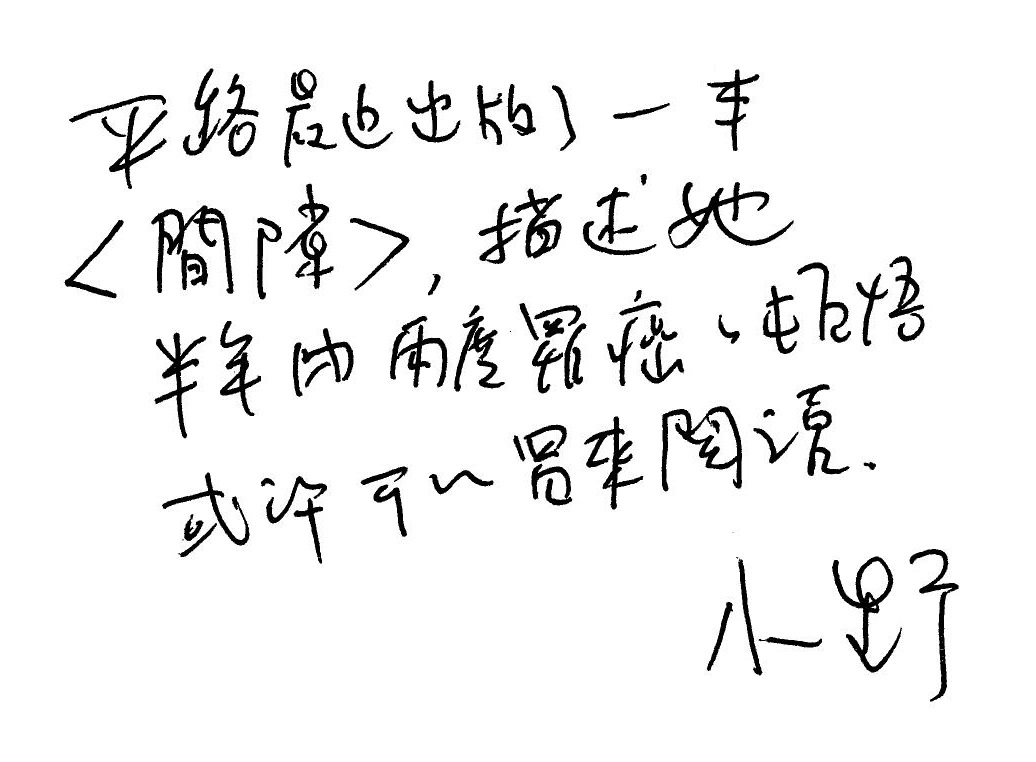 平路最近出版了一本
<間隙>，描述她
半年內兩度罹癌、頓悟
或許可以買來閱讀.
小野